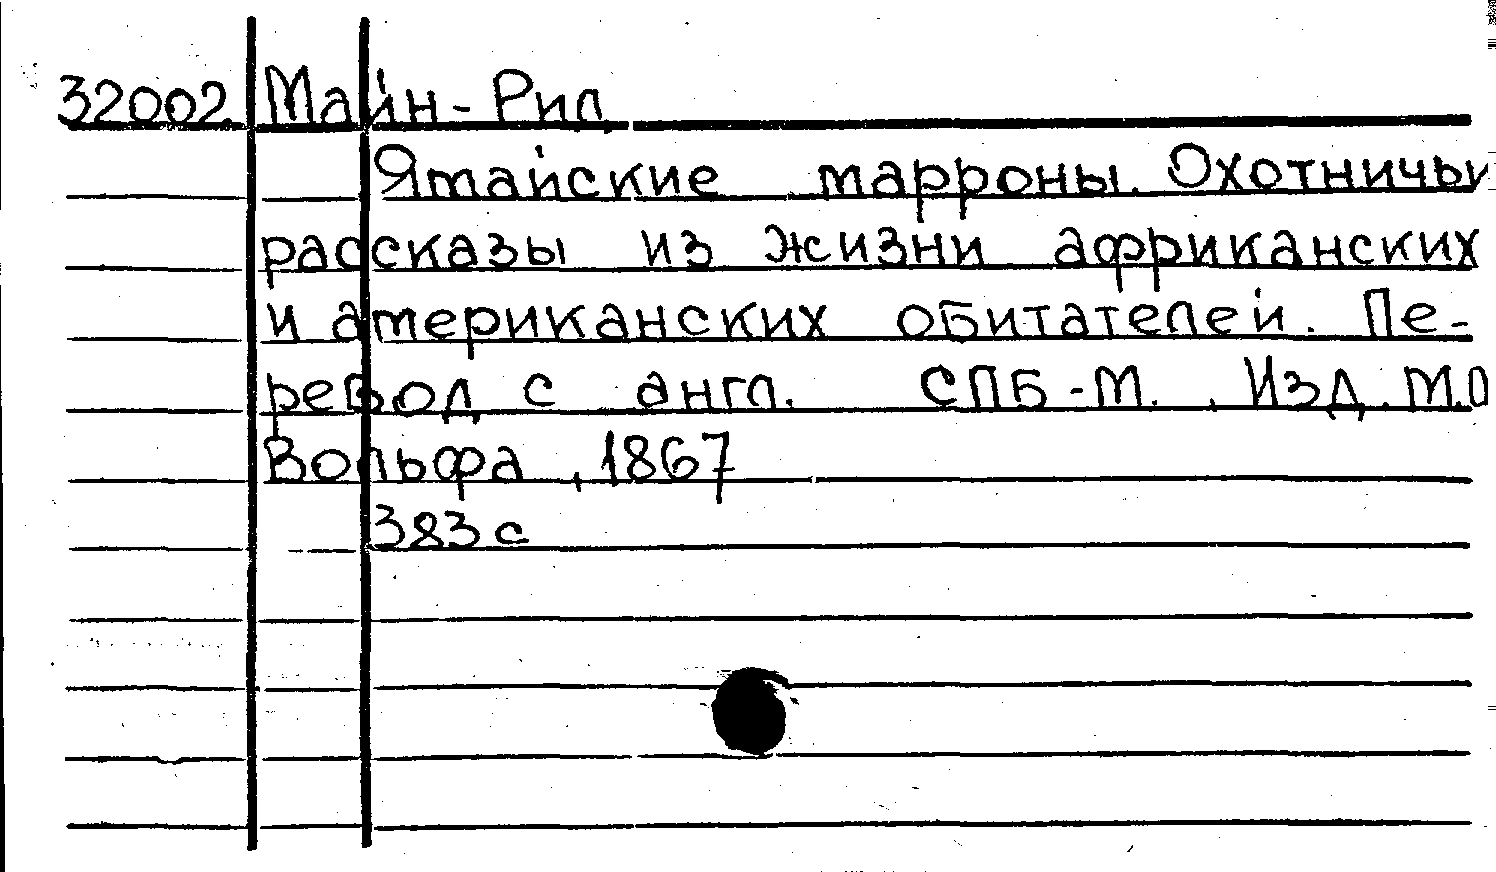 32002 Майн-Рид
Ятайские марроны. Охотничьи
рассказы из жизни африканских
и американских обитателей. Пе-
ревод с англ. СПБ-М., Изд. М.О
Вольфа, 1867
383 с